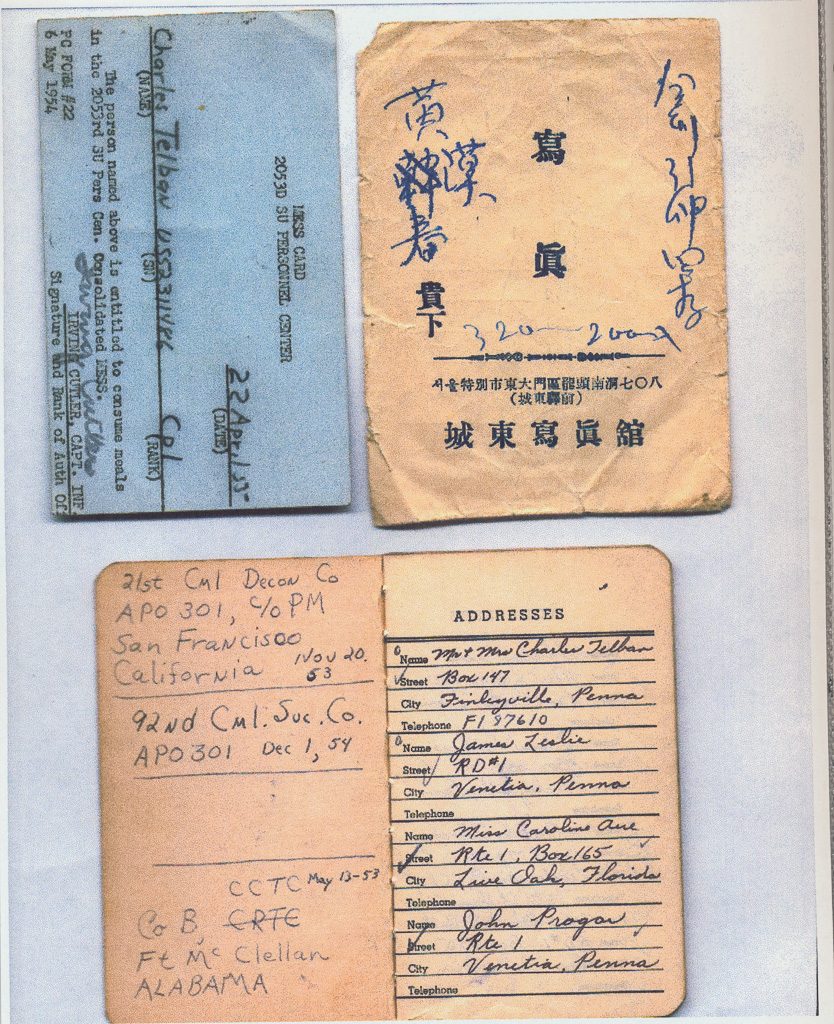 MESS CARD
2053D SU PERSONNEL CENTER
22 Apr 55
(DATE)
Charles Telban US52311486 Cpl
(NAME) (SN) (RANK)
The person named above is entitled to consume meals
in the 2053rd SU Pers Cen. Consolidated MESS.
Irving Cutler
IRVING CUTLER, CAPT. INF.
PC FORM #22 Signature and Rank of Auth Of
6 May 1954
寫眞
黃
漢
春
貴下
320— 200
서울特別市東大門區龍頭南洞七〇八
(城東驛前)
城東寫眞舘
21st Cml Decon Co
APO 301, c/o PM
San Francisco
California Nov 20.
53
92nd Cml. Suc. Co.
APO 301 Dec 1, 54
CCTC May 13-53
Co B CRTC
Ft McClellan
ALABAMA
ADDRESSES
Name Mr & Mrs Charles Telban
Street Box 147
City Finleyville, Penna
Telephone FI 87610
Name James Leslie
Street RD#1
City Venetia, Penna
Telephone
Name Miss Caroline
Street Rte 1, Box 165
City Live Oak, Florida
Telephone
Name John Progar
Street Rte 1
City Venetia, Penna
Telephone